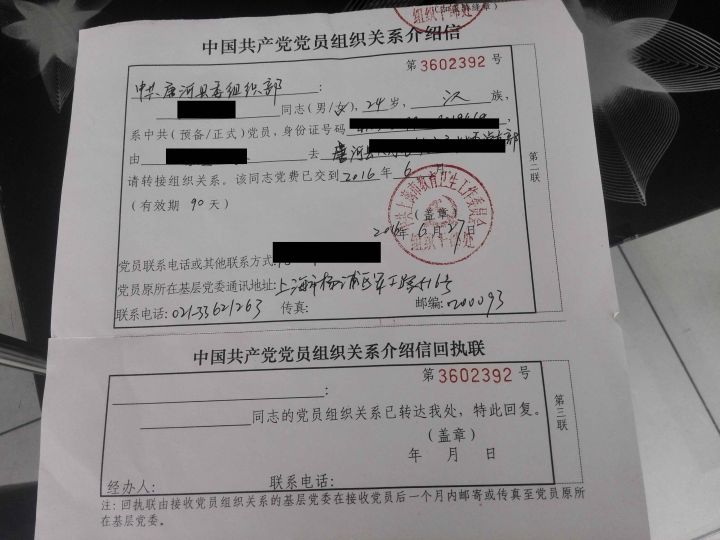 组织干部处
中国共产党党员组织关系介绍信
第 3602392 号
中共唐河县委组织部:
同志(男/女),24岁,汉族,
系中共(预备/正式)党员,身份证号码
由 去 唐河县
请转接组织关系。该同志党费已交到2016年6月。
(有效期 90 天)
(盖章)
2016年6月27日
中共上海市教育卫生工作委员会
组织干部处
党员联系电话或其他联系方式:
党员原所在基层党委通讯地址:上海市杨浦区军工路516号
联系电话:021-33621263 传真: 邮编:200093
第二联
中国共产党党员组织关系介绍信回执联
第 3602392 号
:
同志的党员组织关系已转达我处,特此回复。
(盖章)
年 月 日
经办人: 联系电话:
第三联
注:回执联由接收党员组织关系的基层党委在接收党员后一个月内邮寄或传真至党员原所
在基层党委。